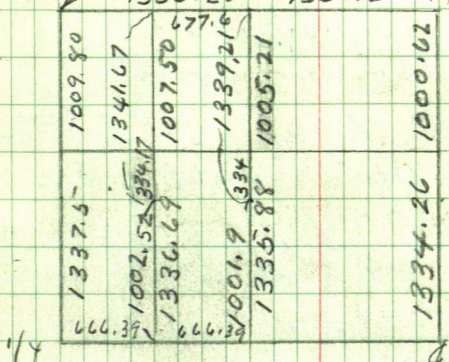 677.6
1009.80
1341.67
1007.50
1339.21
1005.21
1000.62
1337.5
1002.52
334.17
1336.69
1001.9
334
1335.88
1334.26
666.39
666.39
1/4